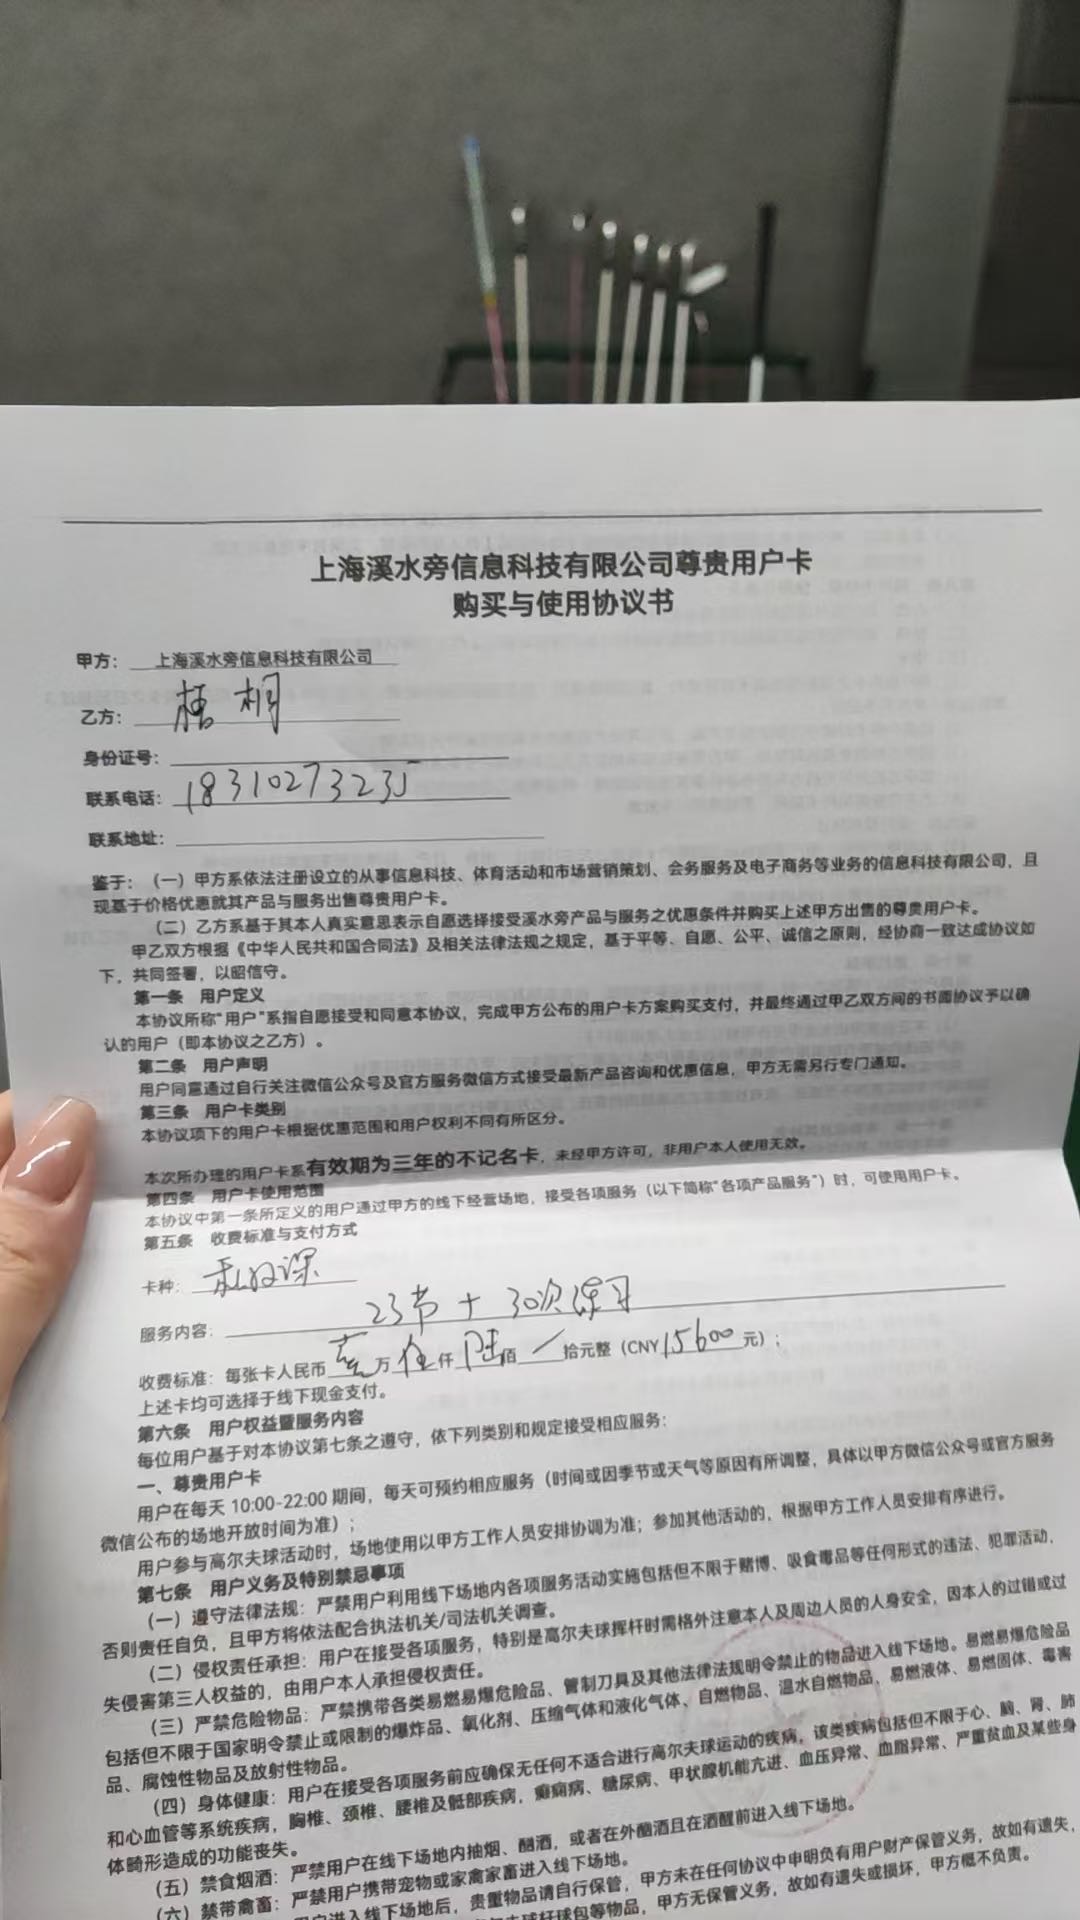 上海溪水旁信息科技有限公司尊贵用户卡
购买与使用协议书
甲方： 上海溪水旁信息科技有限公司
乙方： 梧桐
身份证号：
联系电话： 18310273235
联系地址：
鉴于：（一）甲方系依法注册设立的从事信息科技、体育活动和市场营销策划、会务服务及电子商务等业务的信息科技有限公司，且
现基于价格优惠就其产品与服务出售尊贵用户卡。
（二）乙方系基于其本人真实意思表示自愿选择接受溪水旁产品与服务之优惠条件并购买上述甲方出售的尊贵用户卡。
甲乙双方根据《中华人民共和国合同法》及相关法律法规之规定，基于平等、自愿、公平、诚信之原则，经协商一致达成协议如
下，共同签署，以昭信守。
第一条 用户定义
本协议所称“用户”系指自愿接受和同意本协议，完成甲方公布的用户卡方案购买支付，并最终通过甲乙双方间的书面协议予以确
认的用户（即本协议之乙方）。
第二条 用户声明
用户同意通过自行关注微信公众号及官方服务微信方式接受最新产品咨询和优惠信息，甲方无需另行专门通知。
第三条 用户卡类别
本协议项下的用户卡根据优惠范围和用户权利不同有所区分。
本次所办理的用户卡系有效期为三年的不记名卡，未经甲方许可，非用户本人使用无效。
第四条 用户卡使用范围
本协议中第一条所定义的用户通过甲方的线下经营场地，接受各项服务（以下简称“各项产品服务”）时，可使用用户卡。
第五条 收费标准与支付方式
卡种： 私教课
服务内容： 23节 + 30次练习
收费标准：每张卡人民币 壹 万 伍 仟 陆 佰 / 拾元整（CNY 15600 元）；
上述卡均可选择于线下现金支付。
第六条 用户权益暨服务内容
每位用户基于对本协议第七条之遵守，依下列类别和规定接受相应服务：
一、尊贵用户卡
用户在每天 10:00-22:00 期间，每天可预约相应服务（时间或因季节或天气等原因有所调整，具体以甲方微信公众号或官方服务
微信公布的场地开放时间为准）；
用户参与高尔夫球活动时，场地使用以甲方工作人员安排协调为准；参加其他活动的，根据甲方工作人员安排有序进行。
第七条 用户义务及特别禁忌事项
（一）遵守法律法规：严禁用户利用线下场地内各项服务活动实施包括但不限于赌博、吸食毒品等任何形式的违法、犯罪活动，
否则责任自负，且甲方将依法配合执法机关/司法机关调查。
（二）侵权责任承担：用户在接受各项服务，特别是高尔夫球挥杆时需格外注意本人及周边人员的人身安全，因本人的过错或过
失侵害第三人权益的，由用户本人承担侵权责任。
（三）严禁危险物品：严禁携带各类易燃易爆危险品、管制刀具及其他法律法规明令禁止的物品进入线下场地。易燃易爆危险品
包括但不限于国家明令禁止或限制的爆炸品、氧化剂、压缩气体和液化气体、自燃物品、温水自燃物品，易燃液体、易燃固体、毒害
品、腐蚀性物品及放射性物品。
（四）身体健康：用户在接受各项服务前应确保无任何不适合进行高尔夫球运动的疾病，该类疾病包括但不限于心、脑、肾、肺
和心血管等系统疾病，胸椎、颈椎、腰椎及骶部疾病，癫痫病、糖尿病、甲状腺机能亢进、血压异常、血脂异常、严重贫血及某些身
体畸形造成的功能丧失。
（五）禁食烟酒：严禁用户在线下场地内抽烟、酗酒，或者在外酗酒且在酒醒前进入线下场地。
（六）禁带禽畜：严禁用户携带宠物或家禽家畜进入线下场地。
用户进入线下场地后，贵重物品请自行保管，甲方未在任何协议中申明负有用户财产保管义务，故如有遗失，
球杆球包等物品，甲方无保管义务，故如有遗失或损坏，甲方概不负责。